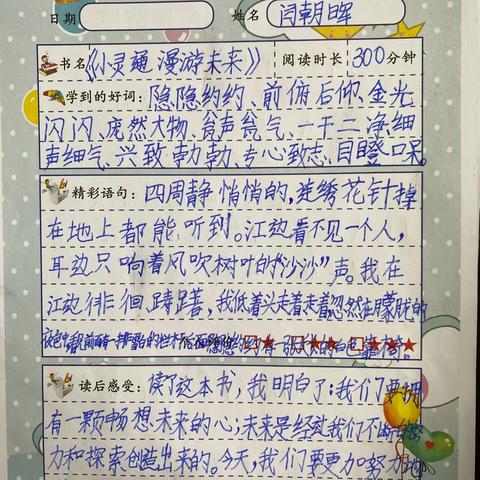 日期 姓名 闫朝晖
书名 《小灵通漫游未来》 阅读时长 300分钟
学到的好词: 隐隐约约、前俯后仰、金光
闪闪、庞然大物、瓮声瓮气、一干二净、细
声细气、兴致勃勃、专心致志、目瞪口呆。
精彩语句: 四周静悄悄的,连绣花针掉
在地上都能听到。江边看不见一个人,
耳边只响着风吹树叶的“沙沙”声。我在
江边徘徊踌躇,我低着头走着走着忽然在朦胧的
夜色中
读后感受: 读了这本书,我明白了:我们要拥
有一颗畅想未来的心;未来是经过我们不断的
力和探索创造出来的。今天,我们要更加努力